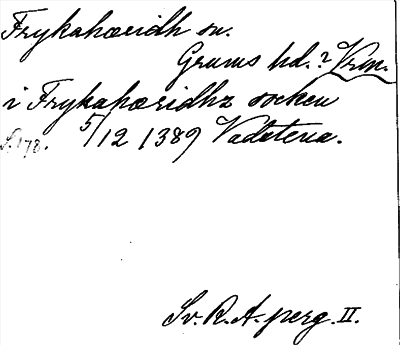 Frykahæridh sn.
Grums hd. i Vrm.
i Frykahæridhz socken
S. 178. 5/12 1389 Vadstena.
Sv. R. A. perg. II.